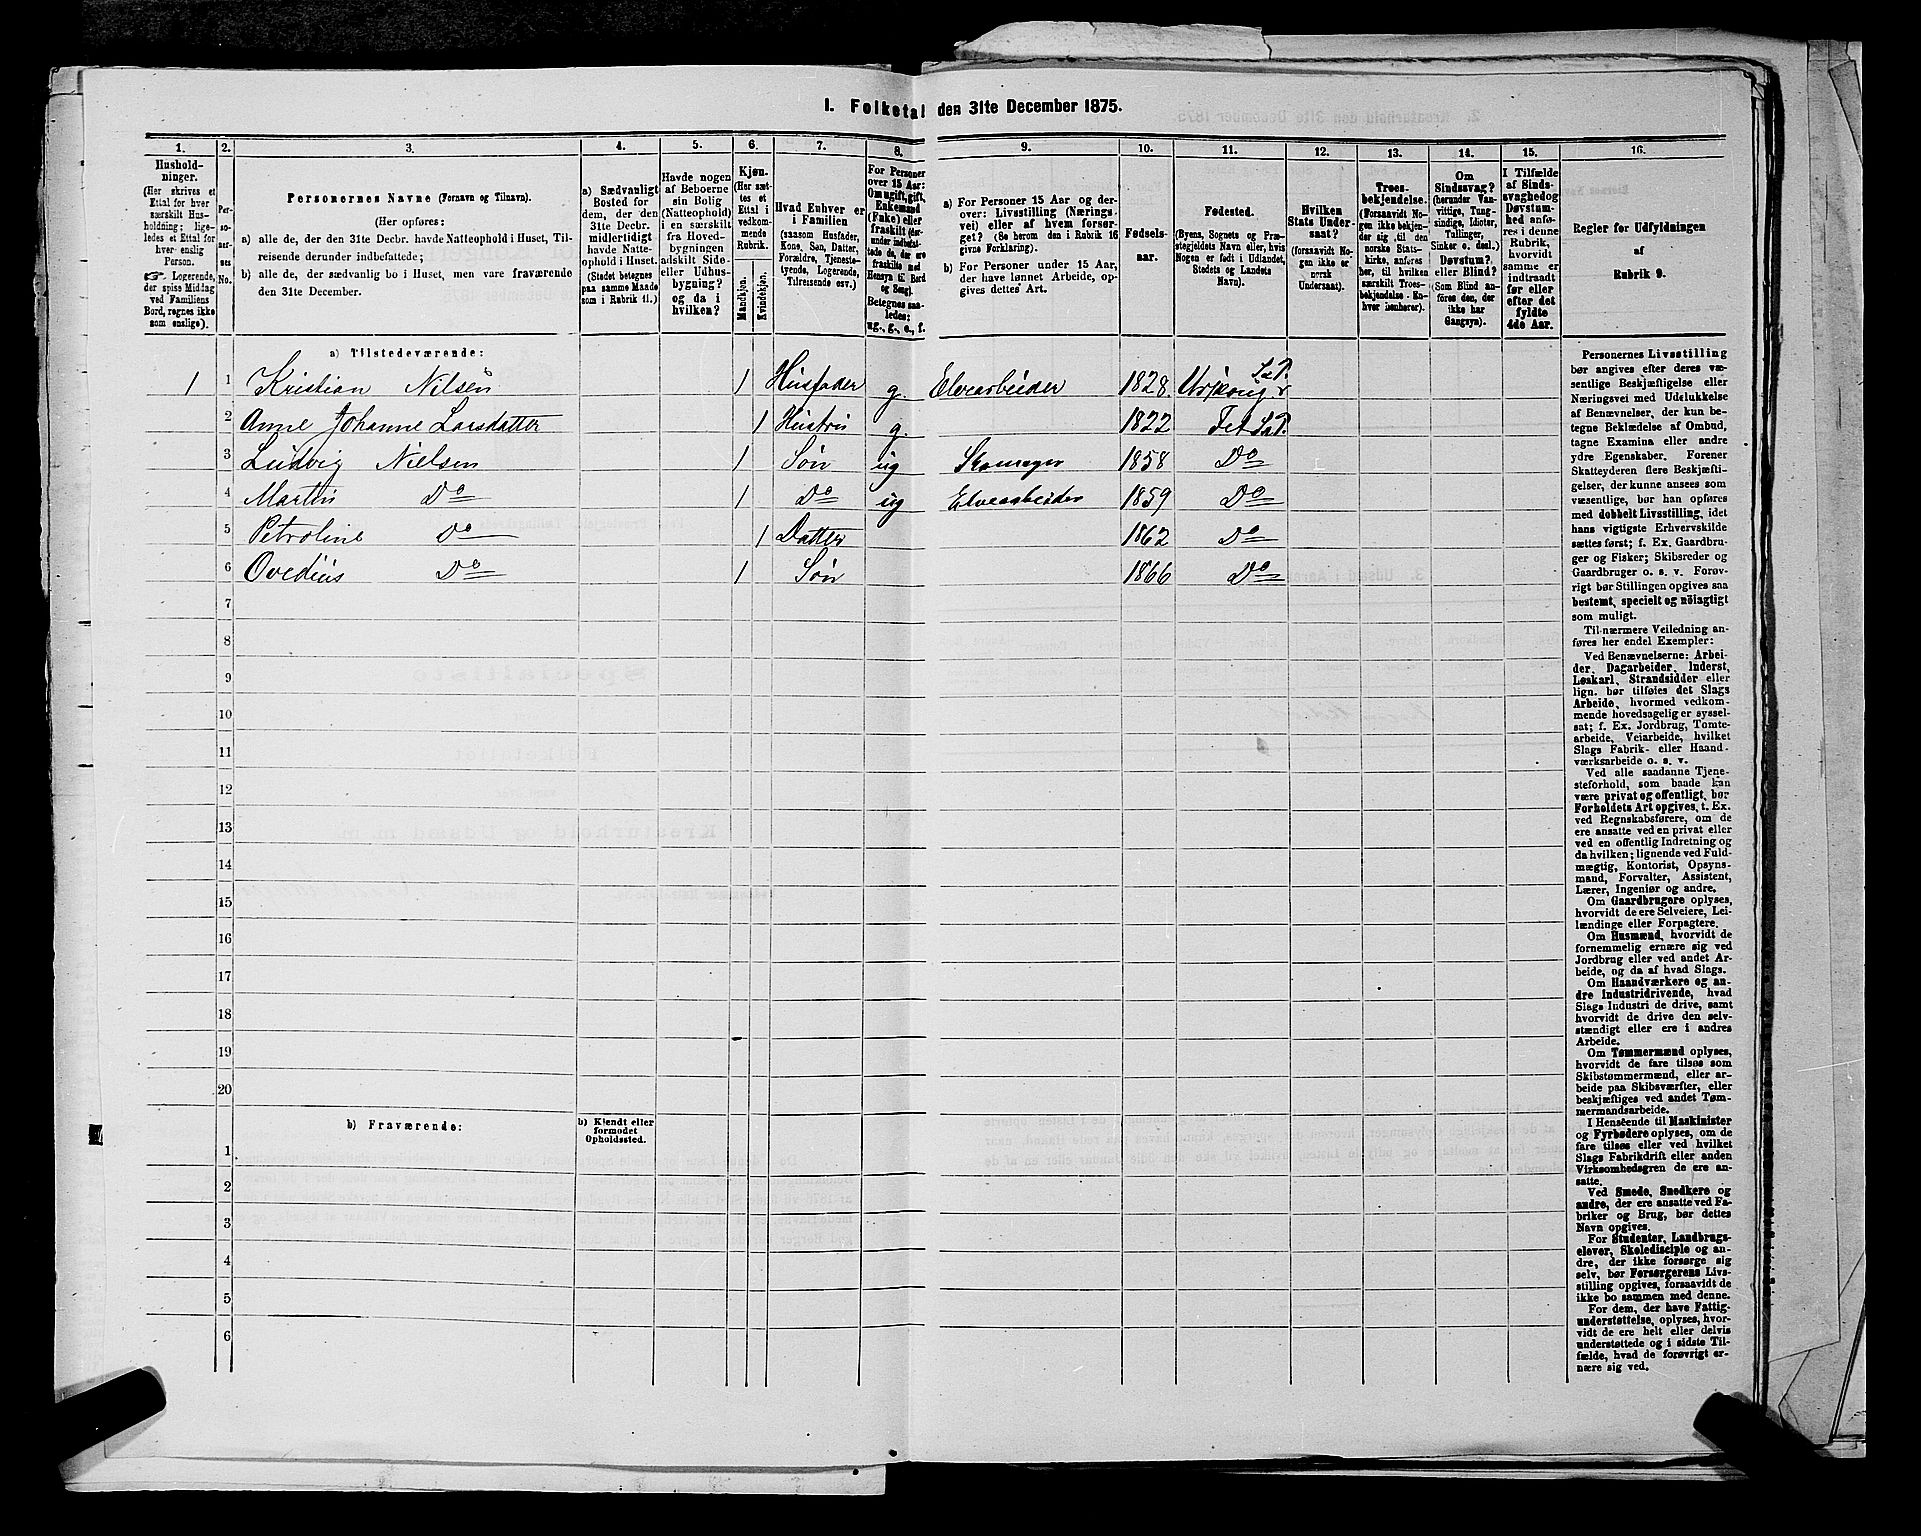 I. Folketal den 31te December 1875.
1. 2. 3. 4. 5. 6. 7. 8. 9. 10. 11. 12. 13. 14. 15. 16.
Hushold-
ninger.
(Her skrives et
Ettal for hver
særskilt Hus-
holdning; lige-
ledes et Ettal for
hver enslig
Person.
☞ Logerende,
der spise Middag
ved Familiens
Bord, regnes ikke
som enslige).
Per-
so-
ner-
nes
No.
Personernes Navne (Fornavn og Tilnavn).
(Her opføres:
a) alle de, der den 31te Decbr. havde Natteophold i Huset, Til-
reisende derunder indbefattede;
b) alle de, der sædvanlig bo i Huset, men vare fraværende
den 31te December.
a) Sædvanligt
Bosted for
dem, der den
31te Decbr.
midlertidigt
havde Natte-
ophold i Huset.
(Stedet betegnes
paa samme Maade
som i Rubrik 11.)
Havde nogen
af Beboerne
sin Bolig
(Natteophold)
i en særskilt
fra Hoved-
bygningen
adskilt Side-
eller Udhus-
bygning?
og da i
hvilken?
Kjøn.
(Her sæt-
tes et
Ettal i
vedkom-
mende
Rubrik.
Mandkjøn.
Kvindekjøn.
Hvad Enhver er
i Familien
(saasom Husfader,
Kone, Søn, Datter,
Forældre, Tjeneste-
tyende, Logerende,
Tilreisende osv.)
For Personer
over 15 Aar:
Om ugift, gift,
Enkemand
(Enke) eller
fraskilt
Betegnes saa-
ledes:
ug., g., e., f.
a) For Personer 15 Aar og der-
over: Livsstilling (Nærings-
vei) eller af hvem forsør-
get? (Se herom den i Rubrik 16
givne Forklaring).
b) For Personer under 15 Aar,
der have lønnet Arbeide, op-
gives dettes Art.
Fødsels-
aar.
Fødested.
(Byens, Sognets og Præ-
stegjeldets Navn eller, hvis
Nogen er født i Udlandet,
Stedets og Landets
Navn).
Hvilken
Stats Under-
saat?
(forsaavidt No-
gen ikke er
norsk
Undersaat).
Troes-
bekjendelse.
(Forsaavidt No-
gen ikke bekjen-
der sig til den
norske Stats-
kirke, anføres
her, til hvilken
særskilt Troes-
bekjendelse En-
hver henhører).
Om
Sindssvag?
(herunder Van-
vittige, Tung-
sindige, Idioter,
Tullinger,
Sinker o. desl.)
Døvstum?
eller Blind?
(Som Blind an-
føres den, der
ikke har
Gangsyn).
I Tilfælde
af Sinds-
svaghed og
Døvstum-
hed anfø-
res i denne
Rubrik,
hvorvidt
samme er
indtraadt
før eller
efter det
fyldte
4de Aar.
Regler for Udfyldningen
af
Rubrik 9.
a) Tilstedeværende:
1 1 Kristian Nilsen 1 Husfader g. Elvearbeider 1828. Urskoug S&P.
2 Anne Johanne Larsdatter 1 Hustru g. 1822 Fet S&P.
3 Ludvig Nielsen 1 Søn ug Skomager 1858 Do
4 Martin Do 1 Do ug Elvearbeider 1859 Do
5 Petroline Do 1 Datter 1862 Do
6 Ovedius Do 1 Søn 1866 Do
7
8
9
10
11
12
13
14
15
16
17
18
19
20
b) Fraværende:
b) Kjendt eller
formodet
Opholdssted.
1
2
3
4
5
6
Personernes Livsstilling
bør angives efter deres væ-
sentlige Beskjæftigelse eller
Næringsvei med Udelukkelse
af Benævnelser, der kun be-
tegne Beklædelse af Ombud,
tagne Examina eller andre
ydre Egenskaber. Forener
Skatteyderen flere Beskjæfti-
gelser, der kunne ansees som
væsentlige, bør han opføres
med dobbelt Livsstilling, idet
hans vigtigste Erhvervskilde
sættes først; f. Ex. Gaardbru-
ger og Fisker; Skibsreder og
Gaardbruger o. s. v. Forøv-
rigt bør Stillingen opgives saa
bestemt, specielt og nøiagtigt
som muligt.
Til nærmere Veiledning an-
føres her endel Exempler:
Ved Benævnelserne: Arbei-
der, Dagarbeider, Inderst,
Løskarl, Strandsidder eller
lign. bør tilføies det Slags
Arbeide, hvormed vedkom-
mende hovedsagelig er syssel-
sat; f. Ex. Jordbrug, Tomte-
arbeide, Veiarbeide, hvilket
Slags Fabrik- eller Haand-
værksarbeide o. s. v.
Ved alle saadanne Tjene-
steforhold, som baade kan
være privat og offentligt, bør
Forholdets Art opgives, t. Ex.
ved Regnskabsførere, om de
ere ansatte ved en privat eller
ved en offentlig Indretning og
da hvilken; lignende ved Fuld-
mægtig, Kontorist, Opsyns-
mand, Forvalter, Assistent,
Lærer, Ingeniør og andre.
Om Gaardbrugere oplyses,
hvorvidt de ere Selveiere, Lei-
lændinge eller Forpagtere.
Om Husmænd, hvorvidt de
fornemmelig ernære sig ved
Jordbrug eller ved andet Ar-
beide, og da af hvad Slags.
Om Haandværkere og an-
dre Industridrivende, hvad
Slags Industri de drive, samt
hvorvidt de drive den selv-
stændigt eller ere i andres
Arbeide.
Om Tømmermænd oplyses,
hvorvidt de fare tilsøs som
Skibstømmermænd, eller ar-
beide paa Skibsværfter, eller
beskjæftiges ved andet Tøm-
mermandsarbeide.
I Henseende til Maskinister
og Fyrbødere oplyses, om de
fare tilsøs eller ved hvilket
Slags Fabrikdrift eller anden
Virksomhedsgren de ere an-
satte.
Ved Smede, Snedkere og
andre, der ere ansatte ved Fa-
briker og Brug, bør dettes
Navn opgives.
For Studenter, Landbrugs-
elever, Skoledisciple og an-
dre, der ikke forsørge sig
selv, bør Forsørgerens Livs-
stilling opgives, forsaavidt de
ikke bo sammen med denne.
For dem, der have Fattig-
understøttelse, oplyses, hvor-
vidt de ere helt eller delvis
understøttede og i sidste Til-
fælde, hvad de forøvrigt er-
nære sig ved.